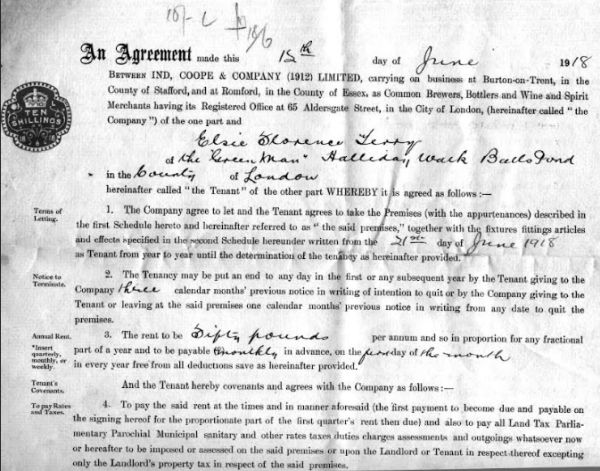 107- L 10/6
An Agreement made this 12th day of June 1918
BETWEEN IND, COOPE & COMPANY (1912) LIMITED, carrying on business at Burton-on-Trent, in the
County of Stafford, and at Romford, in the County of Essex, as Common Brewers, Bottlers and Wine and Spirit
Merchants having its Registered Office at 65 Aldersgate Street, in the City of London, (hereinafter called "the
Company") of the one part and
TEN SHILLINGS
Elsie Florence Terry
of the "Green Man" Halliday Walk Balls Pond
in the County of London
hereinafter called "the Tenant" of the other part WHEREBY it is agreed as follows :—
Terms of Letting.
1. The Company agree to let and the Tenant agrees to take the Premises (with the appurtenances) described in
the first Schedule hereto and hereinafter referred to as "the said premises," together with the fixtures fittings articles
and effects specified in the second Schedule hereunder written from the 21st day of June 1918
as Tenant from year to year until the determination of the tenancy as hereinafter provided.
Notice to Terminate.
2. The Tenancy may be put an end to any day in the first or any subsequent year by the Tenant giving to the
Company three calendar months' previous notice in writing of intention to quit or by the Company giving to the
Tenant or leaving at the said premises one calendar months' previous notice in writing from any date to quit the
premises.
Annual Rent.
*Insert quarterly, monthly, or weekly.
3. The rent to be Fifty pounds per annum and so in proportion for any fractional
part of a year and to be payable *monthly in advance, on the first day of the month
in every year free from all deductions save as hereinafter provided.
Tenant's Covenants.
And the Tenant hereby covenants and agrees with the Company as follows :—
To pay Rates and Taxes.
4. To pay the said rent at the times and in manner aforesaid (the first payment to become due and payable on
the signing hereof for the proportionate part of the first quarter's rent then due) and also to pay all Land Tax Parlia-
mentary Parochial Municipal sanitary and other rates taxes duties charges assessments and outgoings whatsoever now
or hereafter to be imposed or assessed on the said premises or upon the Landlord or Tenant in respect thereof excepting
only the Landlord's property tax in respect of the said premises.